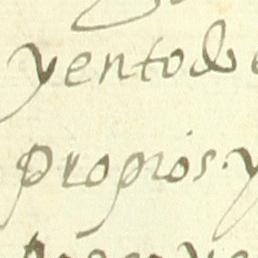 yentodo
propios. y